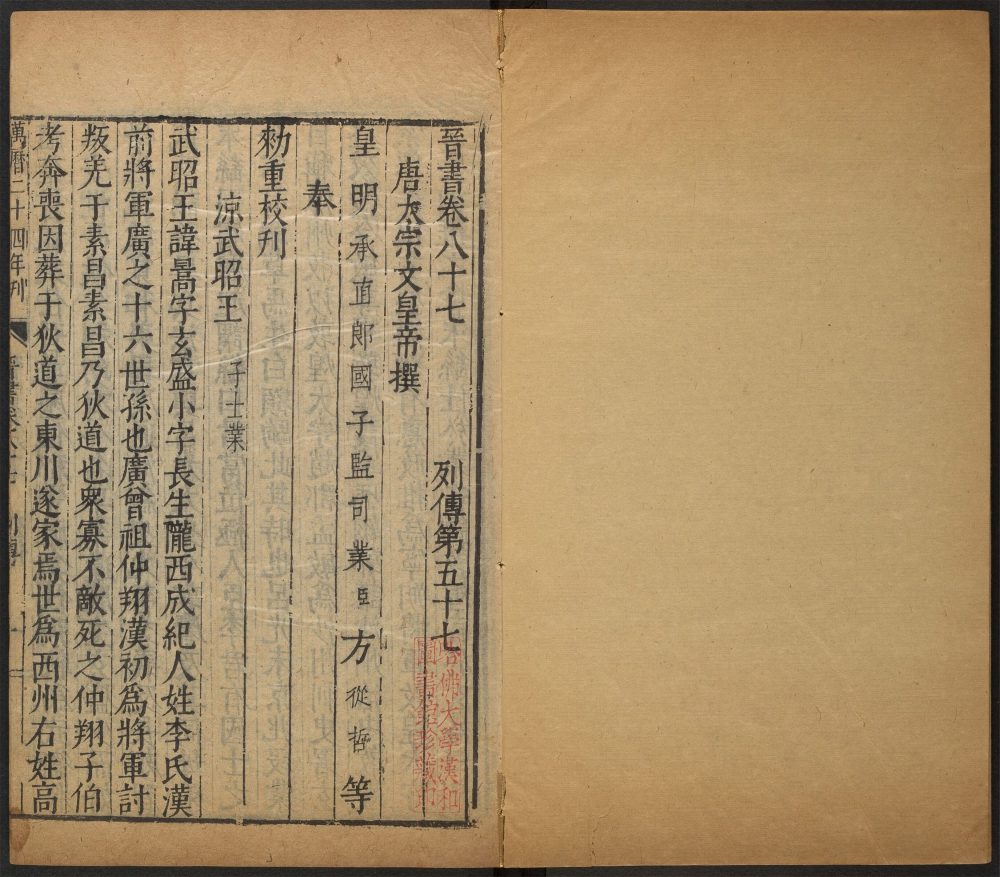 晉書卷八十七　列傳第五十七
唐太宗文皇帝撰
皇明承直郎國子監司業臣方從哲等
奉
勑重校刊
涼武昭王　子士業
武昭王諱暠字玄盛小字長生隴西成紀人姓李氏漢
前將軍廣之十六世孫也廣曾祖仲翔漢初爲將軍討
叛羌于素昌素昌乃狄道也衆寡不敵死之仲翔子伯
考奔喪因葬于狄道之東川遂家焉世爲西州右姓高
萬曆二十四年刊
哈佛大學漢和
圖書館珍藏印